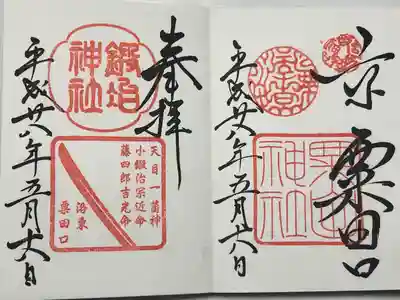 京 粟田口
粟田神社
平成廿八年五月十八日
奉拝
鍛冶神社
天目一箇神
小鍛冶宗近命
藤四郎吉光命
洛東
粟田口
平成廿八年五月十八日